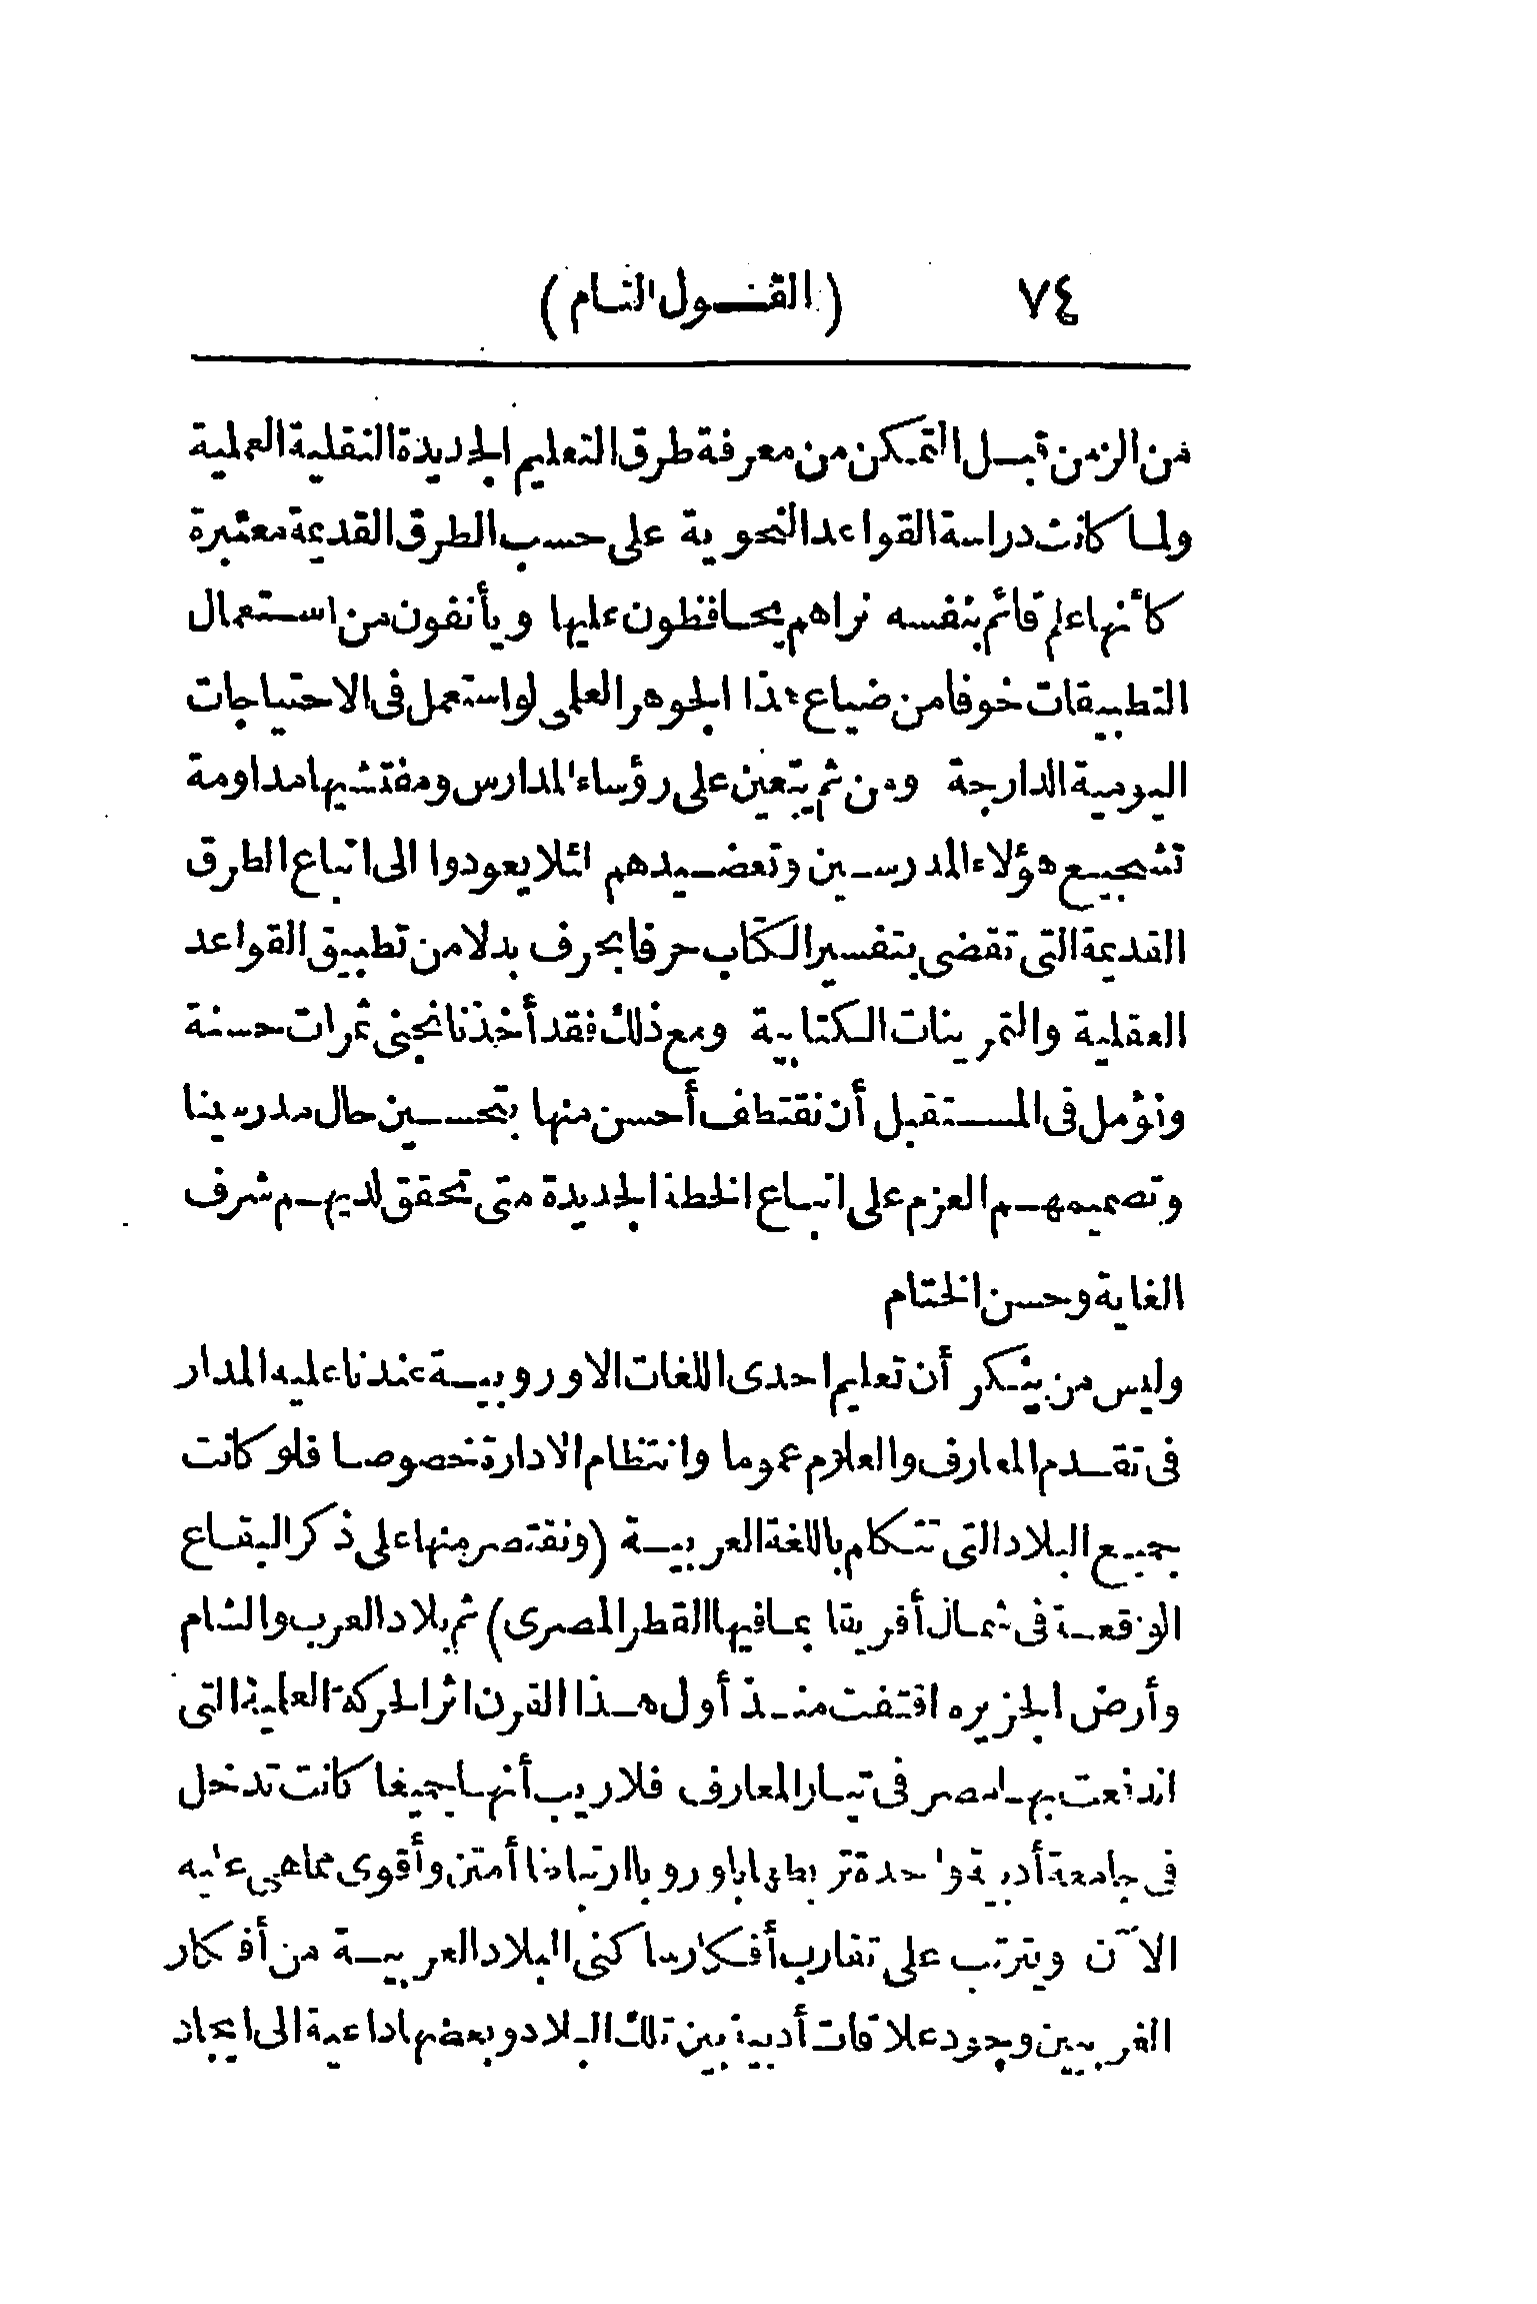 ٧٤ (القول التام)
من الزمن قبل التمكن من معرفة طرق التعليم الجديدة النقلية العملية
ولما كانت دراسة القواعد النحوية على حسب الطرق القديمة معتبرة
كأنها علم قائم بنفسه نراهم يحافظون عليها ويأنفون من استعمال
التطبيقات خوفا من ضياع هذا الجوهر العلمى لو استعمل فى الاحتياجات
اليومية الدارجة ومن ثم يتعين على رؤساء المدارس ومفتشيها مداومة
تشجيع هؤلاء المدرسين وتعضيدهم لئلا يعودوا الى اتباع الطرق
القديمة التى تقضى بتفسير الكتاب حرفا بحرف بدلا من تطبيق القواعد
العقلية والتمرينات الكتابية ومع ذلك فقد أخذنا نجنى ثمرات حسنة
ونؤمل فى المستقبل أن نقتطف أحسن منها بتحسين حال مدرسينا
وتصميمهم العزم على اتباع الخطة الجديدة متى تحقق لديهم شرف
الغاية وحسن الختام
وليس من ينكر أن تعليم احدى اللغات الاوروبية عندنا عليه المدار
فى تقدم المعارف والعلوم عموما وانتظام الادارة خصوصا فلو كانت
جميع البلاد التى تتكلم باللغة العربية (ونقتصر منها على ذكر البقاع
الوقعة فى شمال أفريقا بما فيها القطر المصرى) ثم بلاد العرب والشام
وأرض الجزيره اقتفت منذ أول هذا القرن اثر الحركة العلمية التى
اندفعت بها مصر فى تيار المعارف فلا ريب أنها جميعا كانت تدخل
فى جامعة أدبية واحدة تربطها باوروبا ارتباطا أمتن وأقوى مما هى عليه
الآن ويترتب على تقارب أفكار ساكنى البلاد العربية من أفكار
الغربيين وجود علاقات أدبية بين تلك البلاد وبعضها داعية الى ايجاد